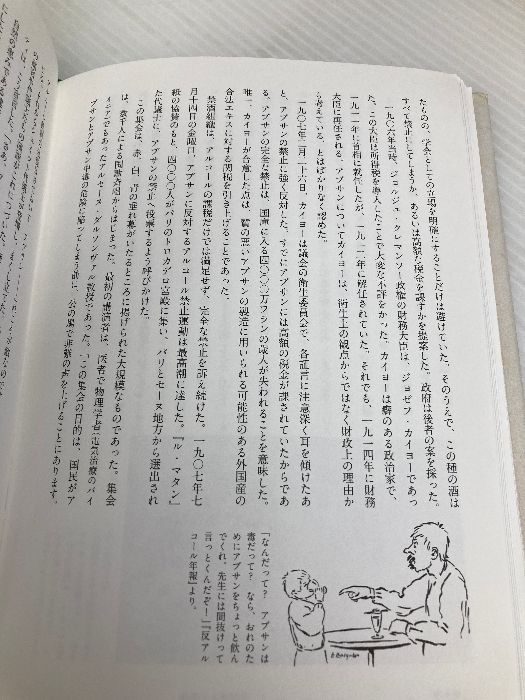 たものの、学会としての立場を明確にすることだけは避けていた。そのうえで、この種の酒は
すべて禁止してしまうか、あるいは高額な税金を課すかを提案した。政府は後者の案を採った。
一九〇六年当時、ジョルジュ・クレマンソー政権の財務大臣は、ジョゼフ・カイヨーであっ
た。この大臣は所得税を導入したことで大変な不評をかった。カイヨーは癖のある政治家で、
一九一一年に首相に就任したが、一九一二年に解任されていた。それでも、一九一四年に財務
大臣に再任される。アプサンについてカイヨーは、衛生上の観点からではなく財政上の理由か
ら考えている、とはばかりなく認めた。
一九〇七年二月二十六日、カイヨーは議会の衛生委員会で、各証言に注意深く耳を傾けたあ
と、アプサンの禁止に強く反対した。すでにアプサンには高額の税金が課されていたからであ
る。アプサンの完全な禁止は、国庫に入る四〇〇〇万フランの歳入が失われることを意味した。
唯一、カイヨーが合意した点は、質の悪いアプサンの製造に用いられる可能性のある外国産の
合法エキスに対する関税を引き上げることであった。
禁酒組織は、アルコールの課税だけでは満足せず、完全な禁止を訴え続けた。一九〇七年七
月十四日の金曜日、アプサンに反対するアルコール禁止運動は最高潮に達した。『ル・マタン』
紙の協賛のもと、四〇〇〇人がパリのトロカデロ宮殿に集い、パリとセーヌ地方から選出され
た代議士に、アプサンの禁止へ投票するよう呼びかけた。
この集会は、赤、白、青の垂れ幕がいたるところに掲げられた大規模なものであった。集会
は、数千人による国歌斉唱からはじまった。最初の講演者は、医者で物理学者（電気治療のパイ
オニアでもあったアルセーヌ・ダルソンヴァル教授）であった。「この集会の目的は、国民がア
プサンとアプサン中毒の危険に陥ってしまう前に、公の場で非難の声を上げることにあります。
「なんだって？　アプサンは
毒だって？　なら、おれのた
めにアプサンをちょっと飲ん
でくれ。先生には間抜けって
言っとくんだぞ！」『反アル
コール年報』より。